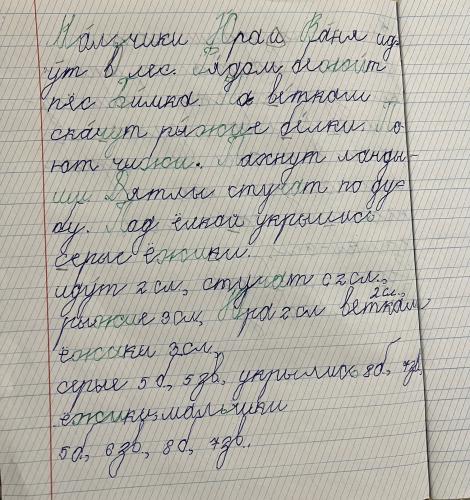 Ма́льчики Юра и Ва́ня ид-
у́т в лес. Рядом бежит
пёс Ди́мка. По веткам
ска́чут ры́жие бе́лки. По-
ют чижи. Пахнут ланды-
ши Дятлы стучат по ду-
бу. Под ёлкой укрылись
серые ёжики.
идут 2 сл., стучат с 2 сл.,
рыжие 3 сл, Юра 2 сл веткам 2 сл.,
ёжики 3 сл,
серые 5 б, 5 зв, укрылись 8 б, 7 зв,
ёжики, мальчики
5 б, 6 зв, 8 б, 7 зв.